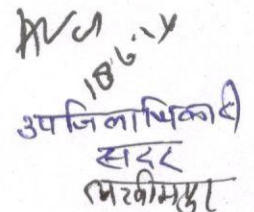 18.6.14
उपजिलाधिकारी
सदर
लखीमपुर